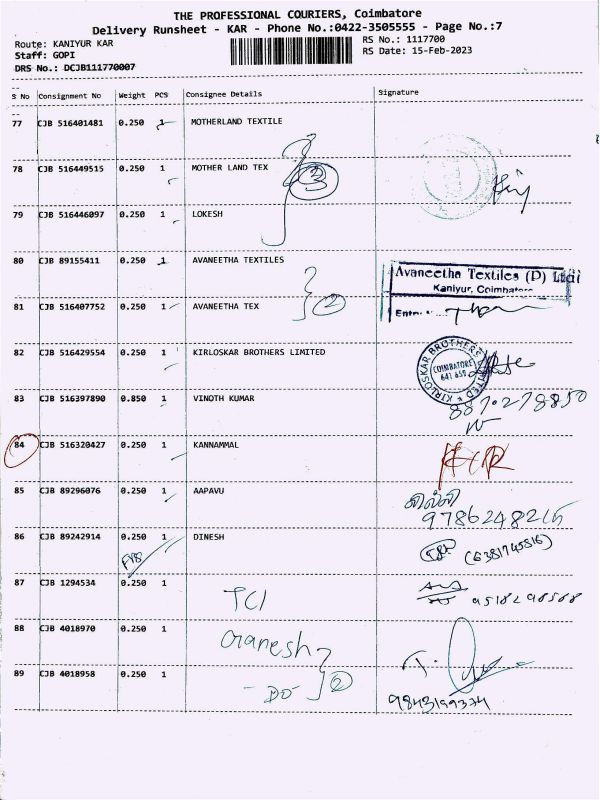 THE PROFESSIONAL COURIERS, Coimbatore
Delivery Runsheet - KAR - Phone No.:0422-3505555 - Page No.:7
Route: KANIYUR KAR
RS No.: 1117700
Staff: GOPI
RS Date: 15-Feb-2023
DRS No.: DCJB111770007
S No Consignment No Weight PCS Consignee Details Signature
77 CJB 516401481 0.250 1 MOTHERLAND TEXTILE
78 CJB 516449515 0.250 1 MOTHER LAND TEX
3
79 CJB 516446097 0.250 1 LOKESH
80 CJB 89155411 0.250 1 AVANEETHA TEXTILES
Avaneetha Textiles (P) Ltd
Kaniyur, Coimbatore
81 CJB 516407752 0.250 1 AVANEETHA TEX
2
82 CJB 516429554 0.250 1 KIRLOSKAR BROTHERS LIMITED
KIRLOSKAR BROTHERS LIMITED
COIMBATORE
641 659
83 CJB 516397890 0.850 1 VINOTH KUMAR
84 CJB 516320427 0.250 1 KANNAMMAL
85 CJB 89296076 0.250 1 AAPAVU
86 CJB 89242914 0.250 1 DINESH
(6381745816)
87 CJB 1294534 0.250 1 TCI
88 CJB 4018970 0.250 1 Ganesh
89 CJB 4018958 0.250 1 - DO - 2